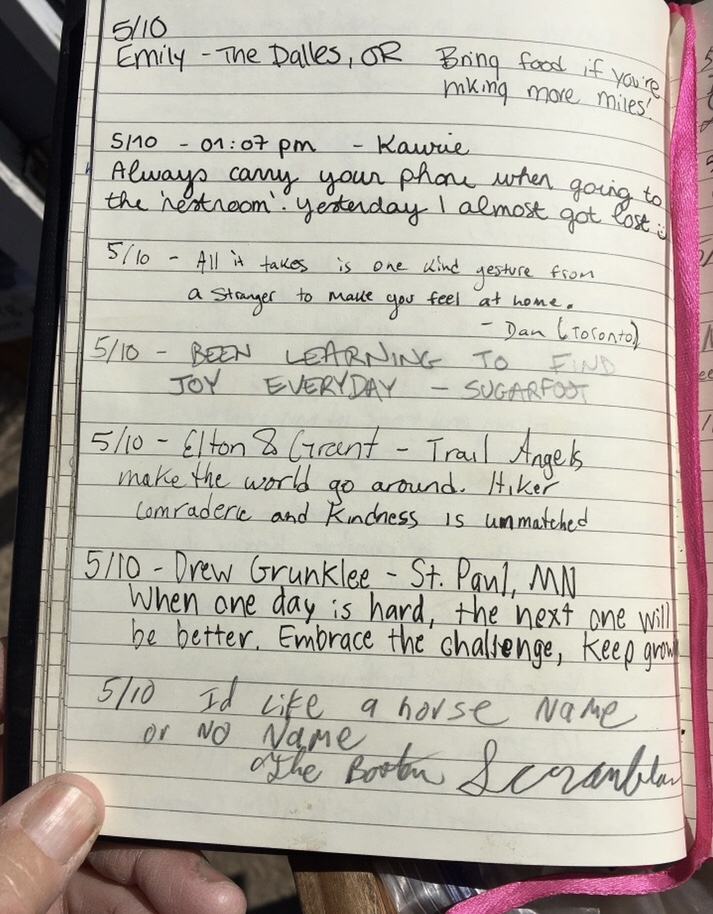 5/10
Emily - The Dalles, OR Bring food if you're
mking more miles!
5/10 - 01:07 pm - Kawrie
Always carry your phone when going to
the 'restroom'. Yesterday I almost got lost :)
5/10 - All it takes is one kind gesture from
a stranger to make you feel at home.
- Dan (Toronto)
5/10 - BEEN LEARNING TO FIND
JOY EVERYDAY - SUGARFOOT
5/10 - Elton & Grant - Trail Angels
make the world go around. Hiker
comraderie and Kindness is unmatched
5/10 - Drew Grunklee - St. Paul, MN
When one day is hard, the next one will
be better. Embrace the challenge, keep grow
5/10 Id Like a horse Name
or No Name
The Boston